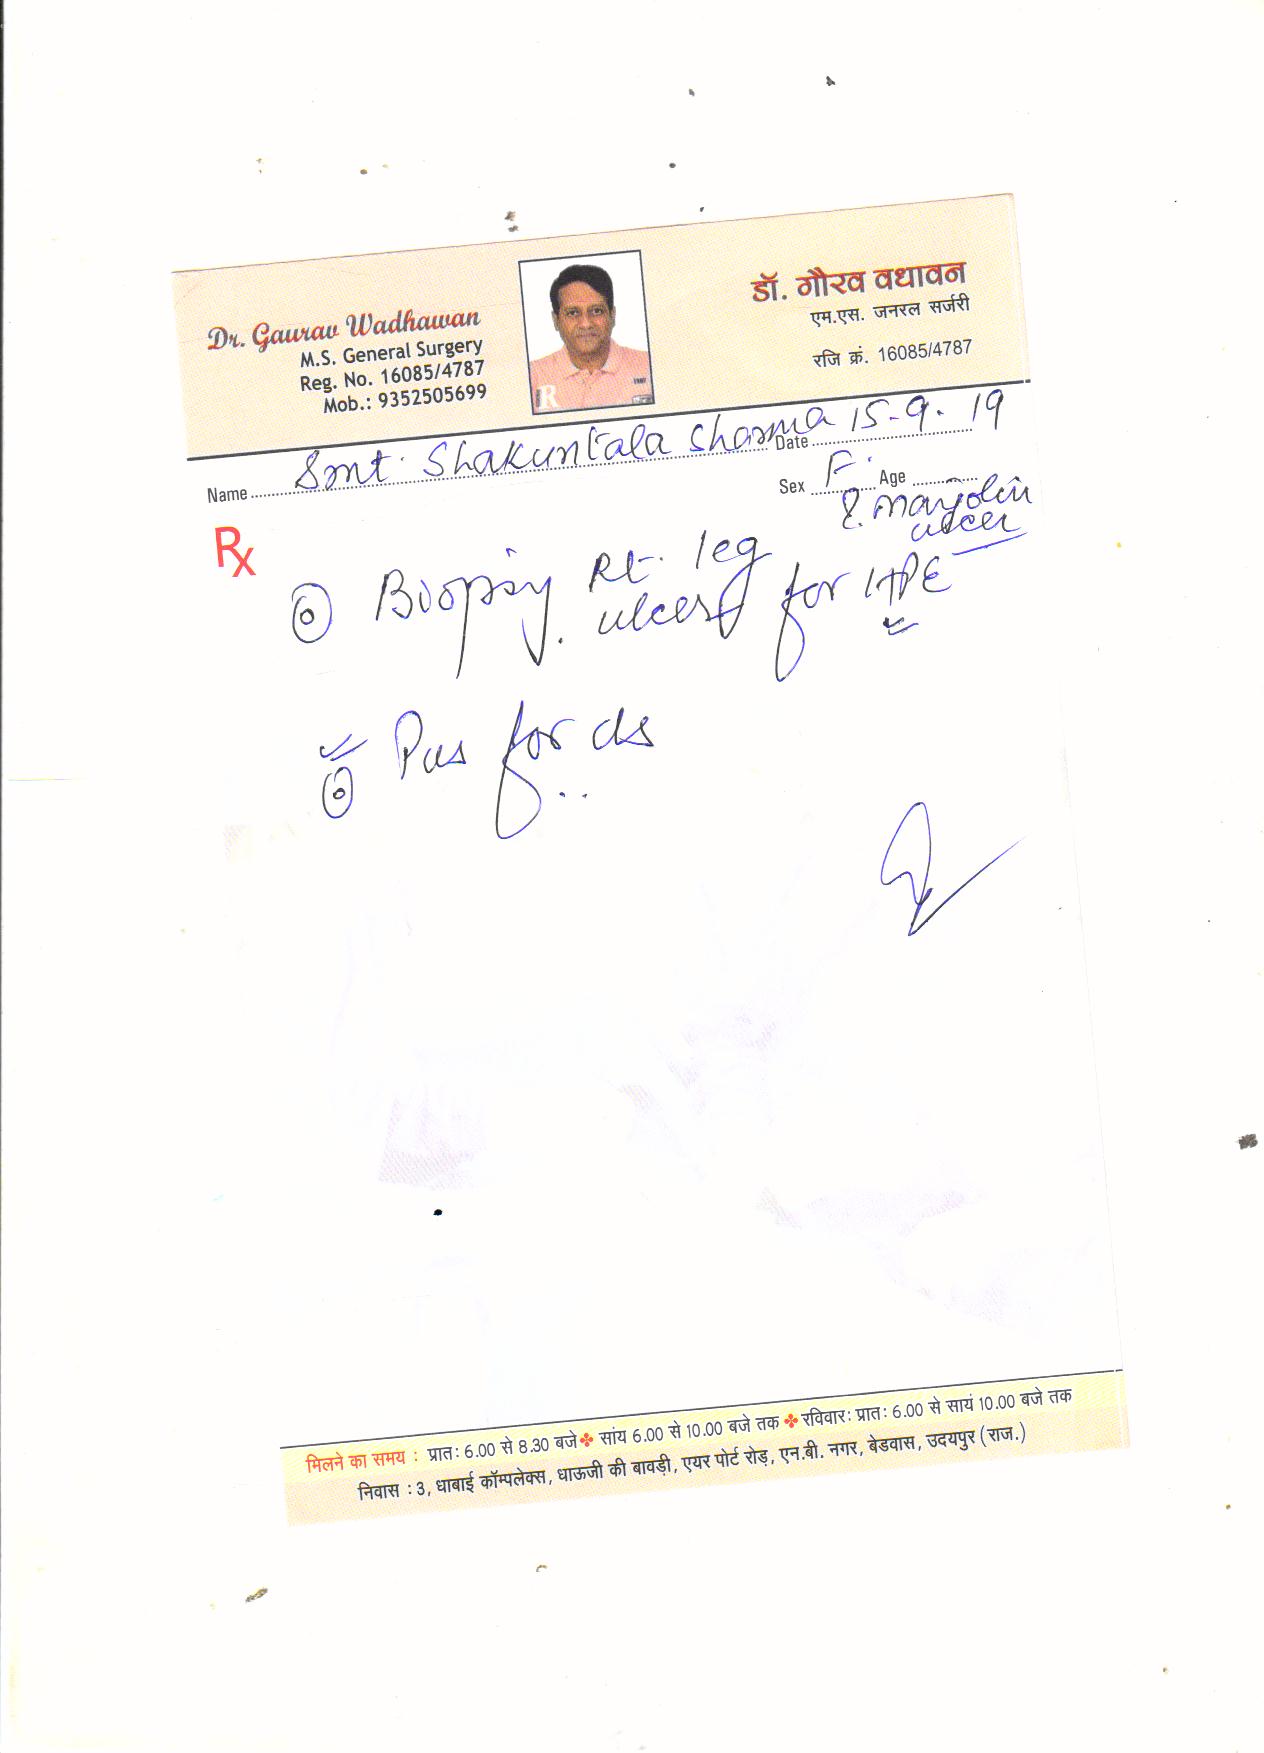 Dr. Gaurav Wadhawan
M.S. General Surgery
Reg. No. 16085/4787
Mob.: 9352505699
डॉ. गौरव वधावन
एम.एस. जनरल सर्जरी
रजि क्रं. 16085/4787
Name Smt. Shakuntala Sharma Date 15-9-19
Sex F. Age
?. marjolin
ulcer
Rx
Biopsy Rt. leg
ulcer for HPE
Pus for cls
मिलने का समय : प्रातः 6.00 से 8.30 बजे ❖ सांय 6.00 से 10.00 बजे तक ❖ रविवारः प्रातः 6.00 से सायं 10.00 बजे तक
निवास : 3, धाबाई कॉम्पलेक्स, धाऊजी की बावड़ी, एयर पोर्ट रोड़, एन.बी. नगर, बेडवास, उदयपुर (राज.)